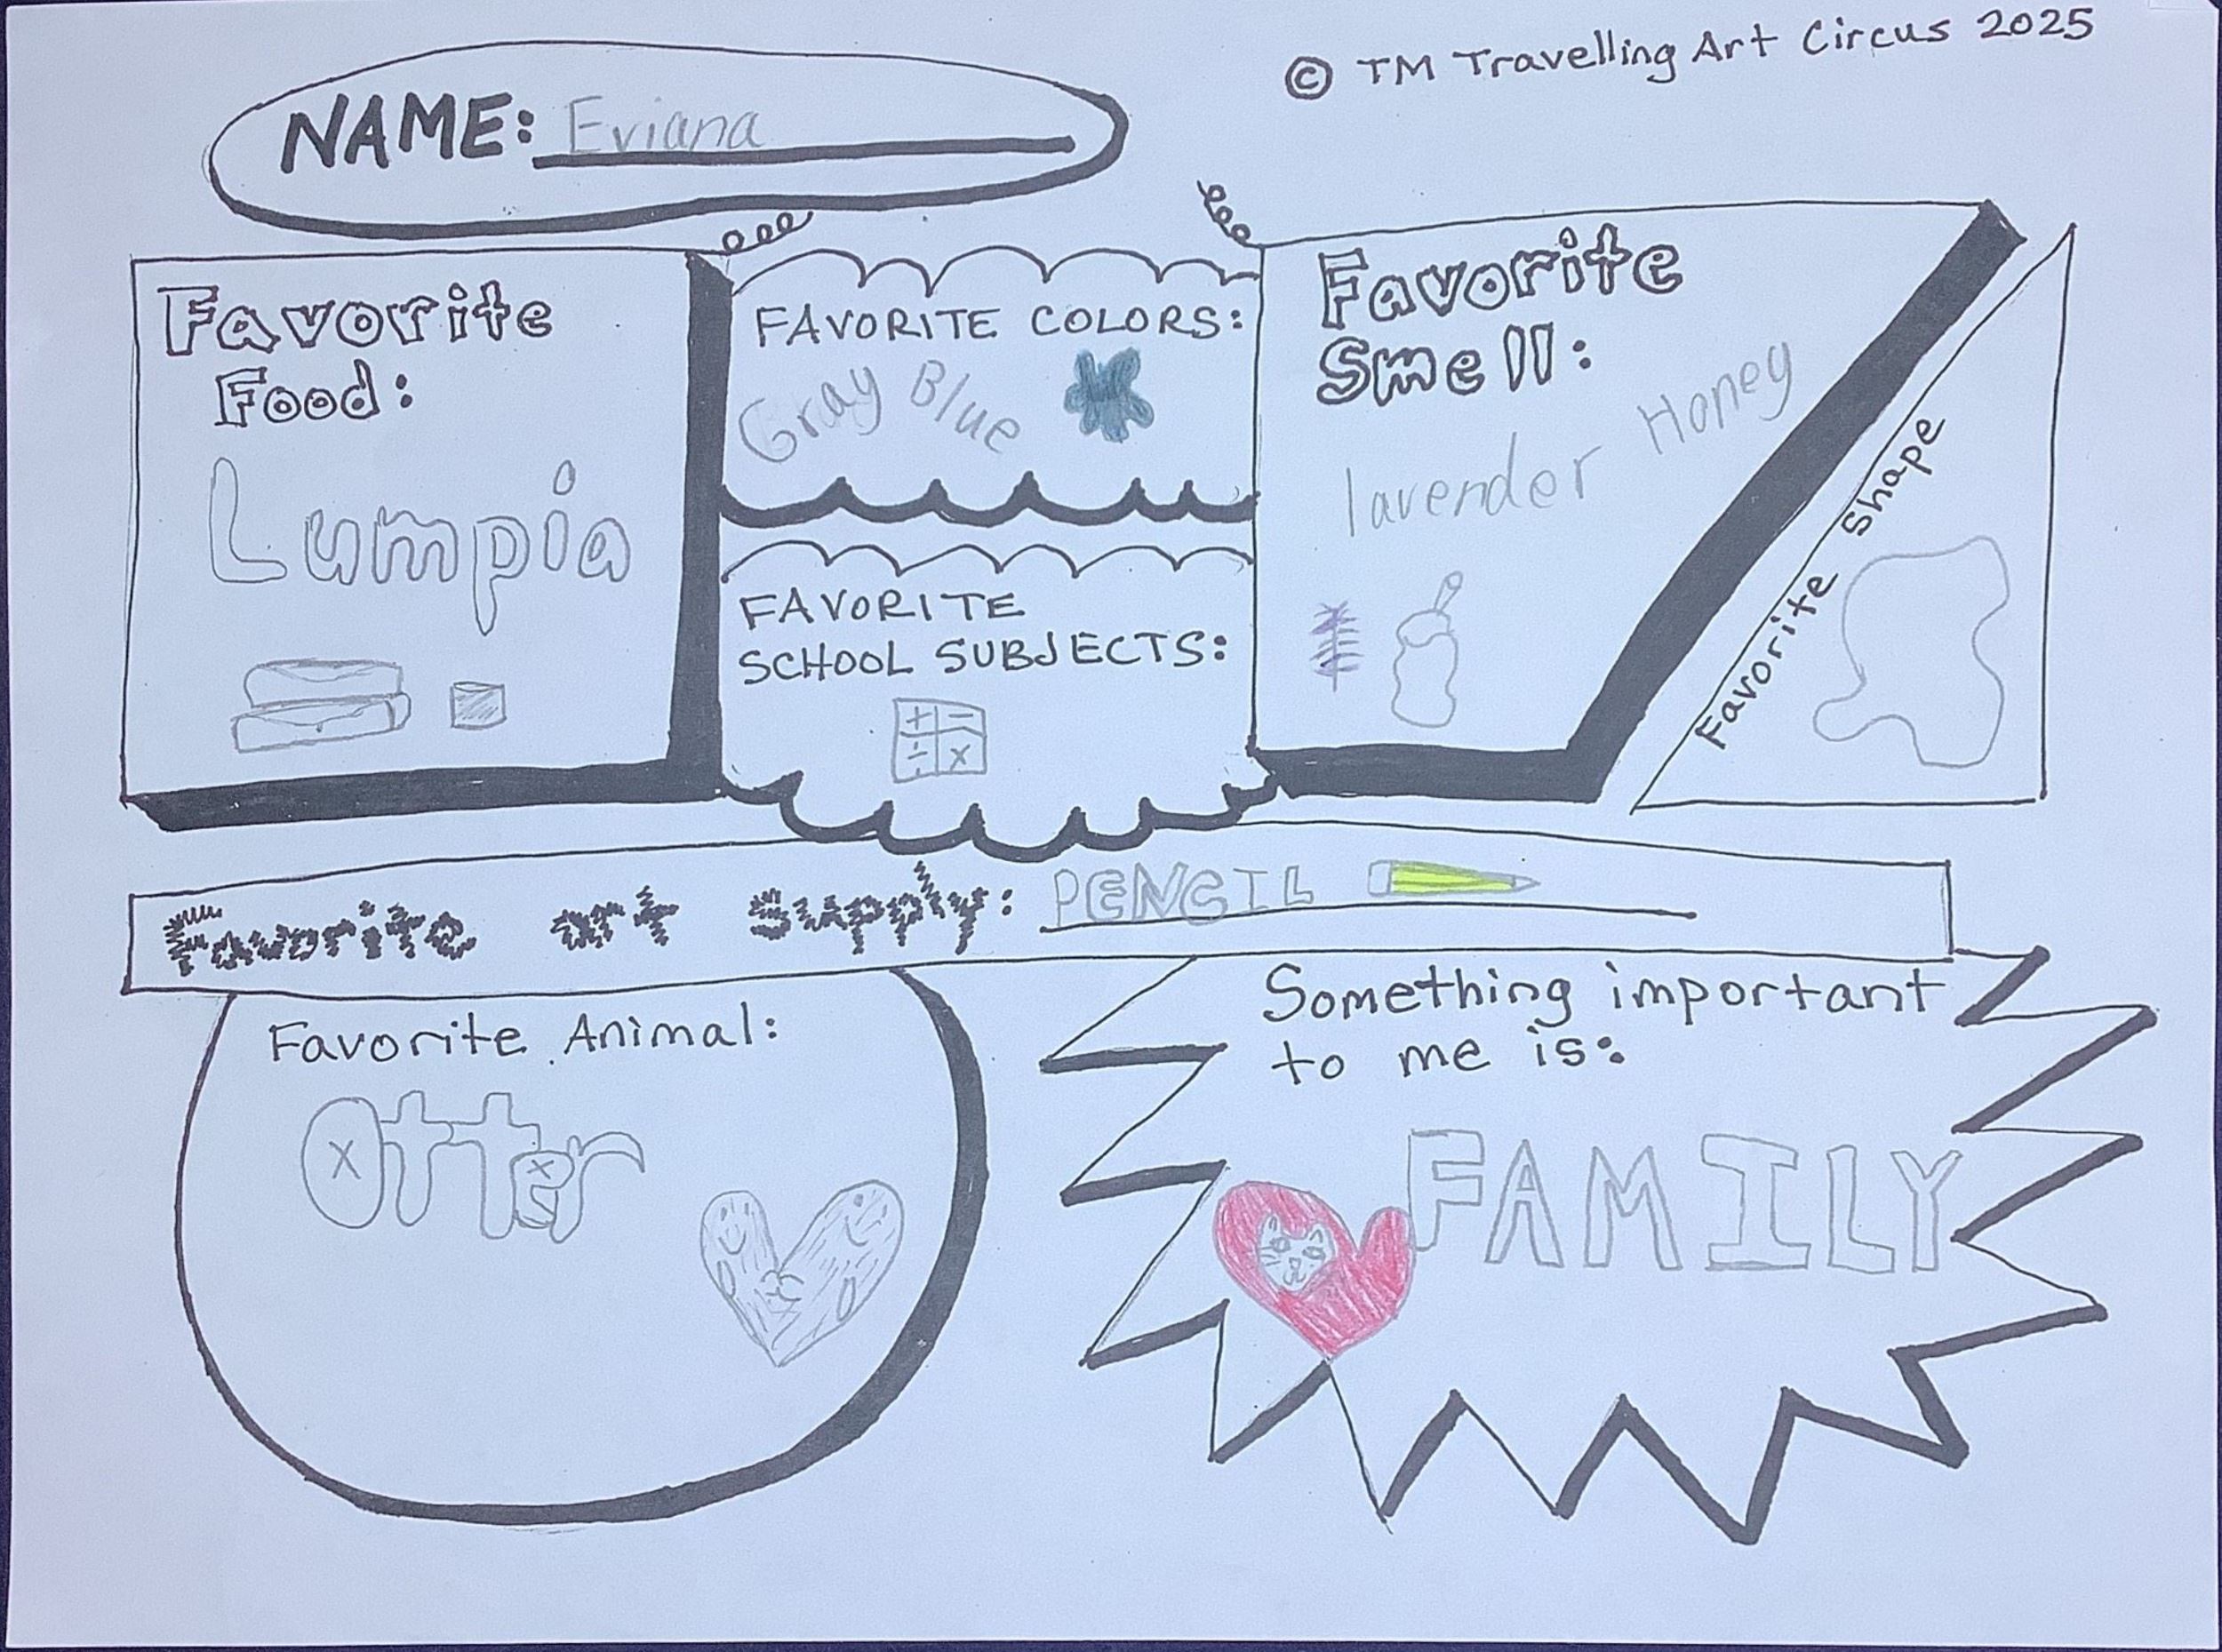 © TM Travelling Art Circus 2025
NAME: Eviana
Favorite
Food:
Lumpia
FAVORITE COLORS:
Gray Blue
FAVORITE
SCHOOL SUBJECTS:
+ -
÷ x
Favorite
Smell:
lavender Honey
Favorite Shape
Favorite art supply: PENCIL
Favorite Animal:
Otter
Something important
to me is:
FAMILY